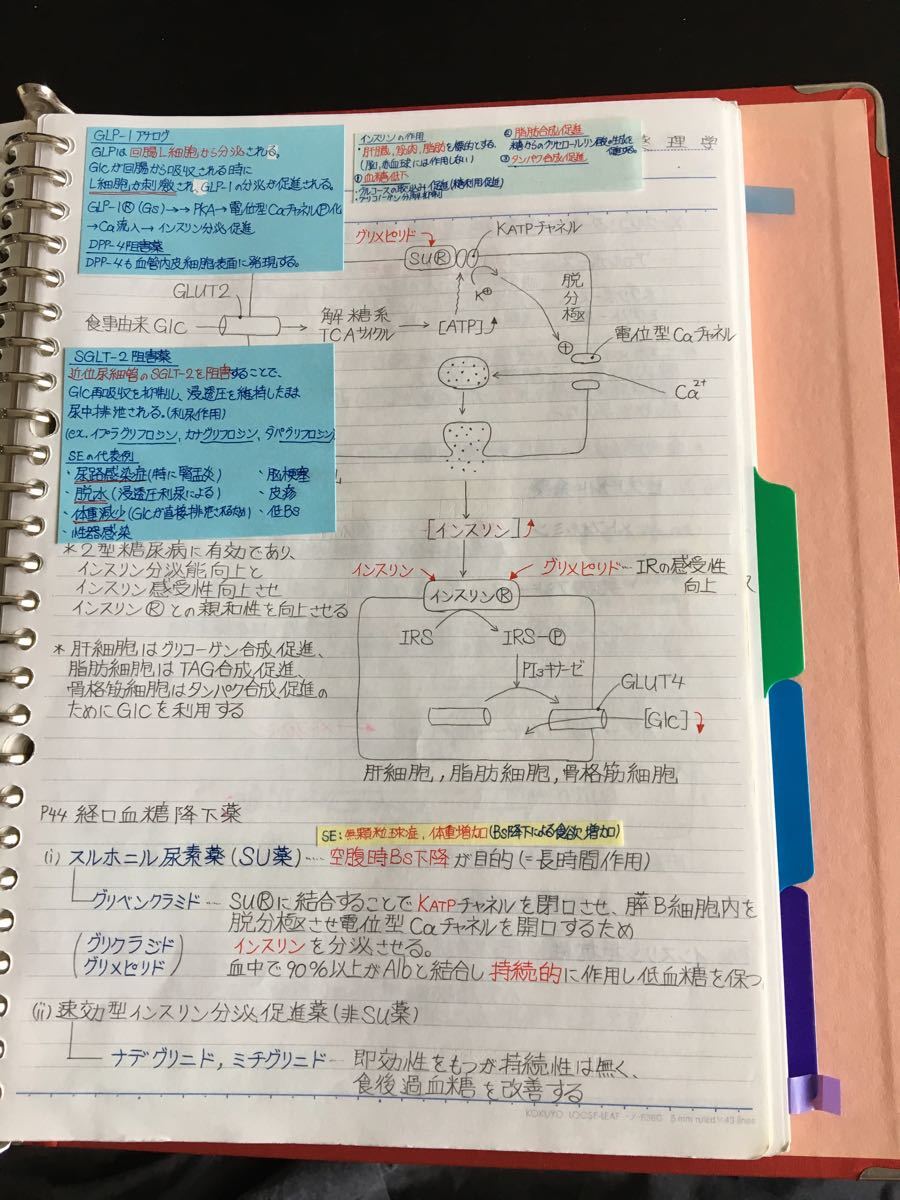 GLP-1アナログ
GLPは回腸L細胞から分泌される。
Glcが回腸から吸収される時に
L細胞が刺激され、GLP-1の分泌が促進される。
GLP-1Ⓡ(Gs)→→PKA→電位型CaチャネルⓅ化
→Ca流入→インスリン分泌促進
DPP-4阻害薬
DPP-4も血管内皮細胞表面に発現する。
インスリンの作用
・肝臓、筋肉、脂肪を標的とする。
(脳、赤血球には作用しない)
①血糖低下
・グルコースの取込み促進(糖利用促進)
②脂肪合成促進
糖からのグリセロールリン酸の生成を
③タンパク合成促進
理学
グリメピリド
SUⓇ
KATPチャネル
K⊕
脱分極
GLUT2
食事由来Glc
解糖系
TCAサイクル
[ATP]
⊕
電位型Caチャネル
Ca²⁺
SGLT-2阻害薬
近位尿細管のSGLT-2を阻害することで、
Glc再吸収を抑制し、浸透圧を維持したまま
尿中排泄される。(利尿作用)
(ex. イプラグリフロシン、カナグリフロシン、ダパグリフロシン)
SEの代表例
・尿路感染症(特に腎盂炎) ・脳梗塞
・脱水(浸透圧利尿による) ・皮疹
・体重減少(Glcが直接排泄されるため) ・低Bs
・性器感染
[インスリン]
*2型糖尿病に有効であり、
インスリン分泌能向上と
インスリン感受性向上させ
インスリンⓇとの親和性を向上させる
インスリン
グリメピリド…IRの感受性
向上
インスリンⓇ
IRS
IRS-Ⓟ
PI3キナーゼ
GLUT4
[Glc]
*肝細胞はグリコーゲン合成促進、
脂肪細胞はTAG合成促進、
骨格筋細胞はタンパク合成促進の
ためにGlcを利用する
肝細胞,脂肪細胞,骨格筋細胞
P44 経口血糖降下薬
SE:無顆粒球症、体重増加(Bs降下による食欲増加)
(i) スルホニル尿素薬(SU薬)…空腹時Bs下降が目的(=長時間作用)
グリベンクラミド…SUⓇに結合することでKATPチャネルを閉口させ、膵B細胞内を
脱分極させ電位型Caチャネルを開口するため
(グリクラジド
グリメピリド)
インスリンを分泌させる。
血中で90%以上がAlbと結合し持続的に作用し低血糖を保つ
(ii) 速効型インスリン分泌促進薬(非SU薬)
ナテグリニド,ミチグリニド…即効性をもつが持続性は無く、
食後過血糖を改善する
KOKUYO LOOSE-LEAF ノ-836C 5 mm ruled×43 lines